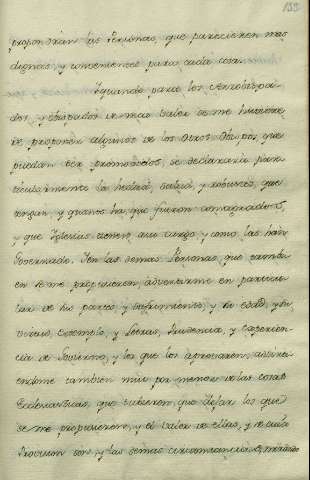 133
propondran las Personas, que parecieren mas
dignas, y convenientes para cada cosa.
Y quando para los Arzobispa-
dos, y obispados de mas valor se me huviere
de proponer algunos de los otros Obispos que
puedan ser promovidos, se declarará par-
ticularmente la hedad, salud, y robustez, que
tengan, y quanto ha, que fueron consagrados,
y que Iglesias tienen a su cargo, y como las han
Governado. Y en las demas Personas, que tambi-
en se me propusieren, advertirme en particu-
lar de sus partes, y nacimiento, y su edad, y su
virtud, exemplo, y Letras, Prudencia, y Experien-
cia de Govierno, y los que los aprovaren,
endome tambien mui por menor de las cosas
Eclesiasticas, que tubieren, que dejar los que
se me propusieren, y el valor de ellas, y de cuia
Provision son, y las demas circunstancias